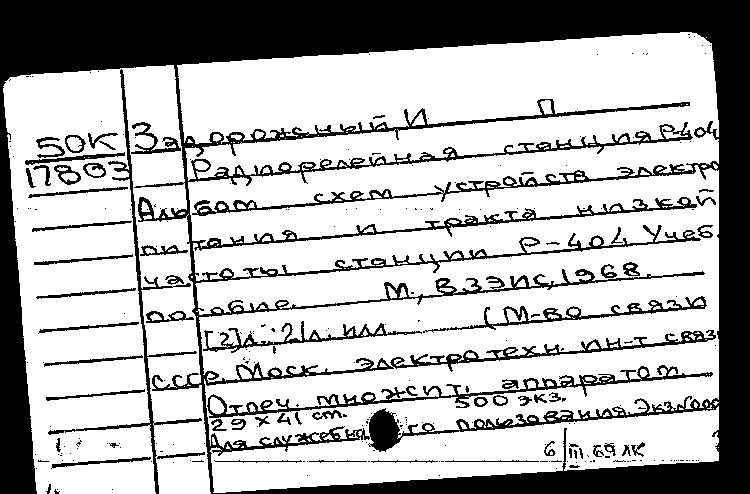 50К Задорожный, И П
17803 Радиорелейная станция Р-404
Альбом схем устройств электро
питания и тракта низкой
частоты станции Р-404 Учеб.
пособие. М., ВЗЭИС, 1968.
[2]л.; 21л. илл. (М-во связи
СССР. Моск. электротехн. ин-т связи
Отпеч. множит. аппаратом.
29 x 41 cm. 500 экз.
Для служебного пользования. Экз.№000
6 III 69 ЛК